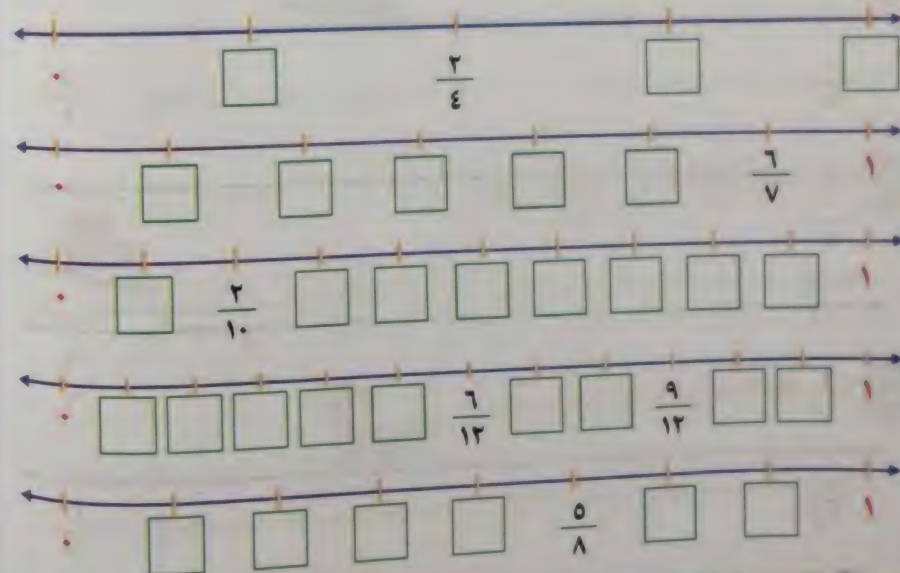 ٠ ٢/٤
٠ ٦/٧ ١
٠ ٢/١٠ ١
٠ ٦/١٢ ٩/١٢ ١
٠ ٥/٨ ١